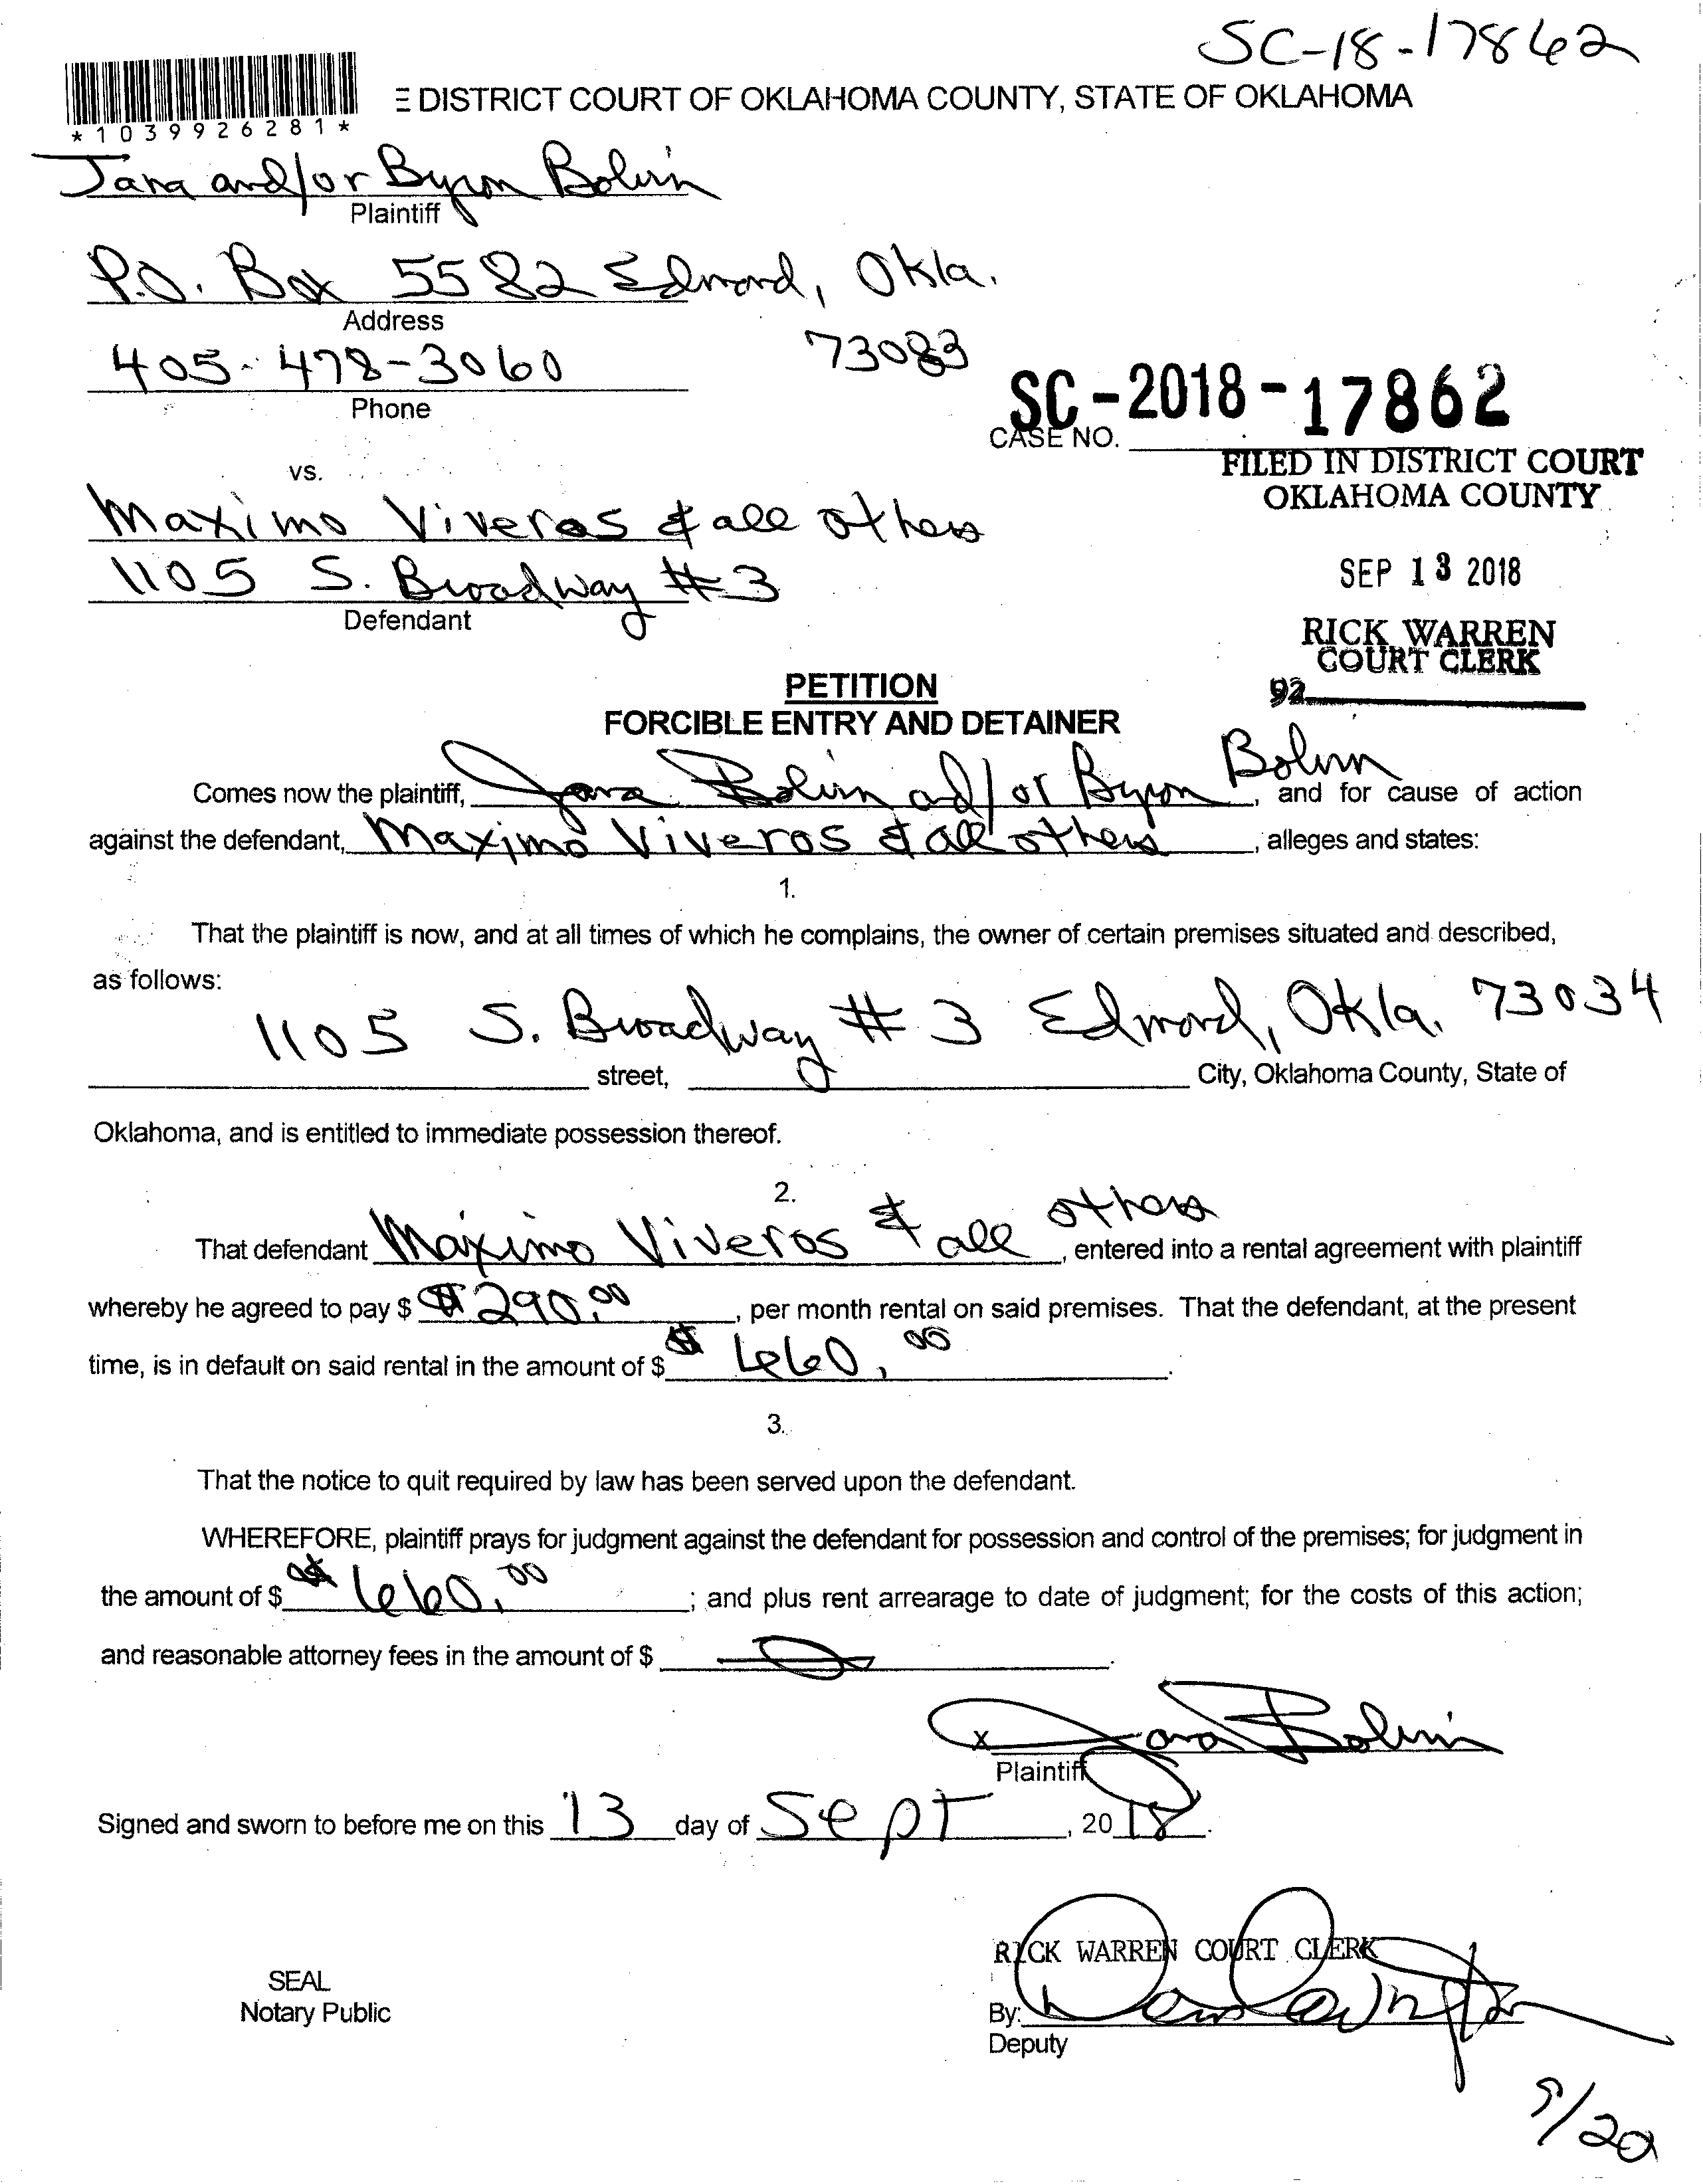 SC-18-17862
E DISTRICT COURT OF OKLAHOMA COUNTY, STATE OF OKLAHOMA
*1039926281*
Jana and/or Byron Bolin
Plaintiff
P.O. Box 5582 Edmond, Okla.
Address
73083
405-478-3060
Phone
SC-2018-17862
CASE NO.
FILED IN DISTRICT COURT
OKLAHOMA COUNTY
vs.
Maximo Viveros & all others
1105 S. Broadway #3
Defendant
SEP 13 2018
RICK WARREN
COURT CLERK
92
PETITION
FORCIBLE ENTRY AND DETAINER
Comes now the plaintiff, Jana Bolin and/or Byron Bolin, and for cause of action
against the defendant, Maximo Viveros & all others, alleges and states:
1.
That the plaintiff is now, and at all times of which he complains, the owner of certain premises situated and described,
as follows:
1105 S. Broadway # 3 Edmond, Okla. 73034
street, City, Oklahoma County, State of
Oklahoma, and is entitled to immediate possession thereof.
2.
That defendant Maximo Viveros & all others, entered into a rental agreement with plaintiff
whereby he agreed to pay $ $290.00, per month rental on said premises. That the defendant, at the present
time, is in default on said rental in the amount of $ $660.00.
3.
That the notice to quit required by law has been served upon the defendant.
WHEREFORE, plaintiff prays for judgment against the defendant for possession and control of the premises; for judgment in
the amount of $ $660.00; and plus rent arrearage to date of judgment; for the costs of this action;
and reasonable attorney fees in the amount of $
x Jana Bolin
Plaintiff
Signed and sworn to before me on this 13 day of Sept, 2018.
RICK WARREN COURT CLERK
SEAL
Notary Public
By:
Deputy
9/20